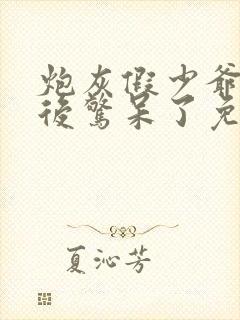 炮灰假少爷
後驚呆了免
夏沁芳